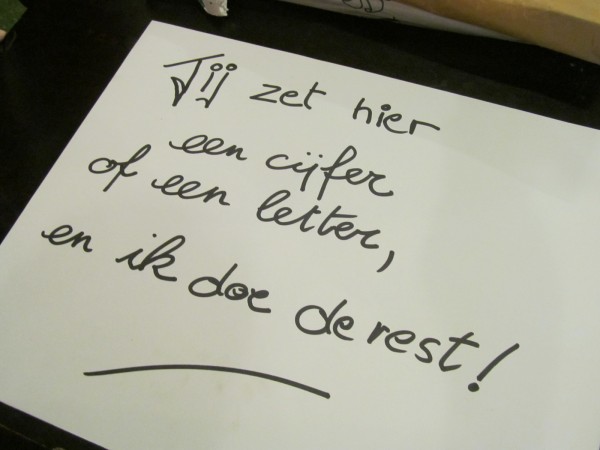 Jij zet hier
een cijfer
of een letter,
en ik doe de rest!